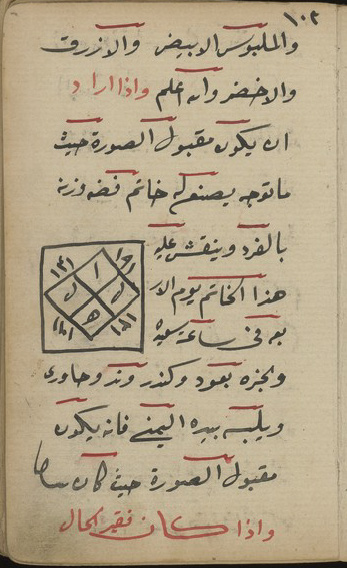 ١٠٢
والملبوس الابيض والازرق
والاخضر والله اعلم واذا اراد
ان يكون مقبول الصورة حيث
ما توجه يصنع له خاتم فضه وزنه
بالفرد وينقش عليه
هذا الخاتم يوم الار
بعه في ساعة سعيده
وبخره بعود وكندر وند وجاوى
ويلبسه بيده اليمنى فانه يكون
مقبول الصورة حيث كان
واذا كان فقير الحال
ا
ل
ل
ه